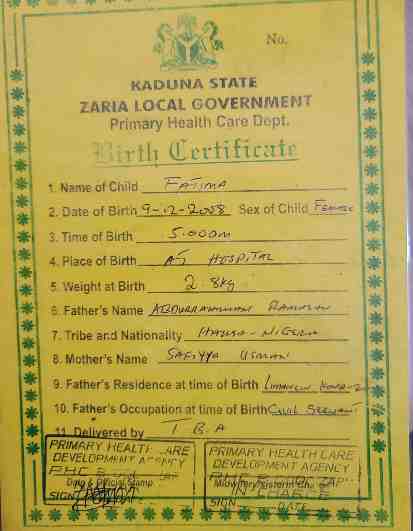 No.
KADUNA STATE
ZARIA LOCAL GOVERNMENT
Primary Health Care Dept.
Birth Certificate
1. Name of Child FATIMA
2. Date of Birth 9-12-2008 Sex of Child Female
3. Time of Birth 5.00am
4. Place of Birth AT HOSPITAL
5. Weight at Birth 2.8kg
6. Father's Name ABDURRAHMAN RAMADAN
7. Tribe and Nationality HAUSA - NIGERIA
8. Mother's Name SAFIYYA USMAN
9. Father's Residence at time of Birth
10. Father's Occupation at time of Birth Civil SERVANT
11. Delivered by T B A
PRIMARY HEALTH CARE
DEVELOPMENT AGENCY
PHC
Date & Official Stamp
SIGN
PRIMARY HEALTH CARE
DEVELOPMENT AGENCY
PHC
IN-CHARGE
SIGN DATE